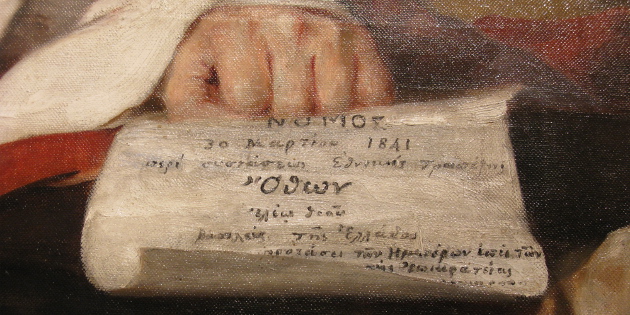 ΝΟΜΟΣ
30 Μαρτίου 1841
περί συστάσεως Εθνικής Τραπέζης
Ὄθων
ἐλέῳ θεοῦ
βασιλεύς τῆς Ἑλλάδος
προτάσει τῶν Ἡμετέρων ἐπί τῶν
τῆς Ἐπικρατείας